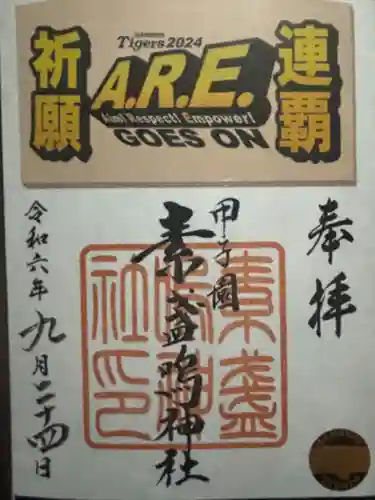 Tigers 2024
祈願
連覇
A.R.E.
Aim! Respect! Empower!
GOES ON
奉拝
甲子園
素盞嗚神社
令和六年九月二十四日